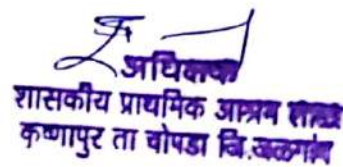 अधिक्षक
शासकीय प्राथमिक आश्रम शाळा
कृष्णापुर ता चोपडा जि.जळगांव